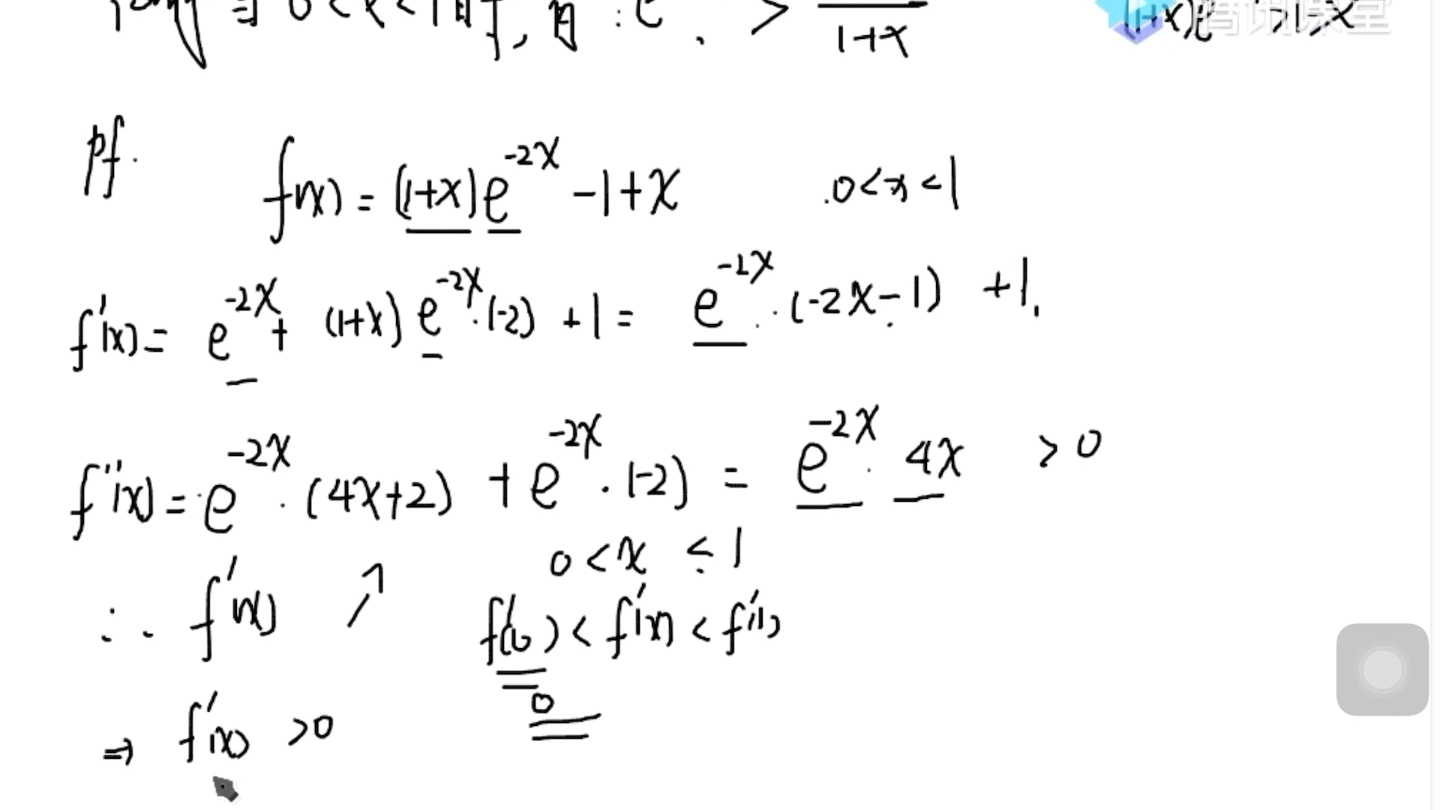 0<x<1时, 有 e > 1+x (1+x)e >1-x
腾讯课堂
pf. f(x) = (1+x)e^{-2x} -1+x 0<x<1
f'(x) = e^{-2x} + (1+x) e^{-2x}·(-2) +1 = e^{-2x}·(-2x-1) +1.
f''(x) = e^{-2x}·(4x+2) + e^{-2x}·(-2) = e^{-2x}·4x >0
0<x<1
∴ f'(x) ↗ f'(0) < f'(x) < f'(1)
0
⇒ f'(x) >0